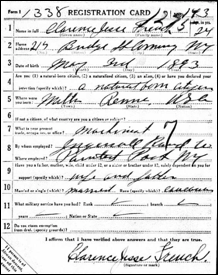 Form 1 1338 REGISTRATION CARD No. 43
1 Name in full Clarence Jesse French Age, in yrs. 24
2 Home address 217 Bridge St Corning NY
3 Date of birth May 3rd 1893
4 Are you (1) a natural-born citizen, (2) a naturalized citizen, (3) an alien, (4) or have you declared your intention (specify which)? a natural born citizen
5 Where were you born? Penna USA
6 If not a citizen, of what country are you a citizen or subject?
7 What is your present trade, occupation, or office? Machinist 7
8 By whom employed? Ingersoll Rand Co
Where employed? Painted Post NY
9 Have you a father, mother, wife, child under 12, or a sister or brother under 12, solely dependent on you for support (specify which)? wife and father
10 Married or single (which)? married Race (specify which)? Caucasian
11 What military service have you had? Rank
Nation or State
12 Do you claim exemption from draft (specify grounds)?
I affirm that I have verified above answers and that they are true.
Clarence Jesse French
(Signature or mark)